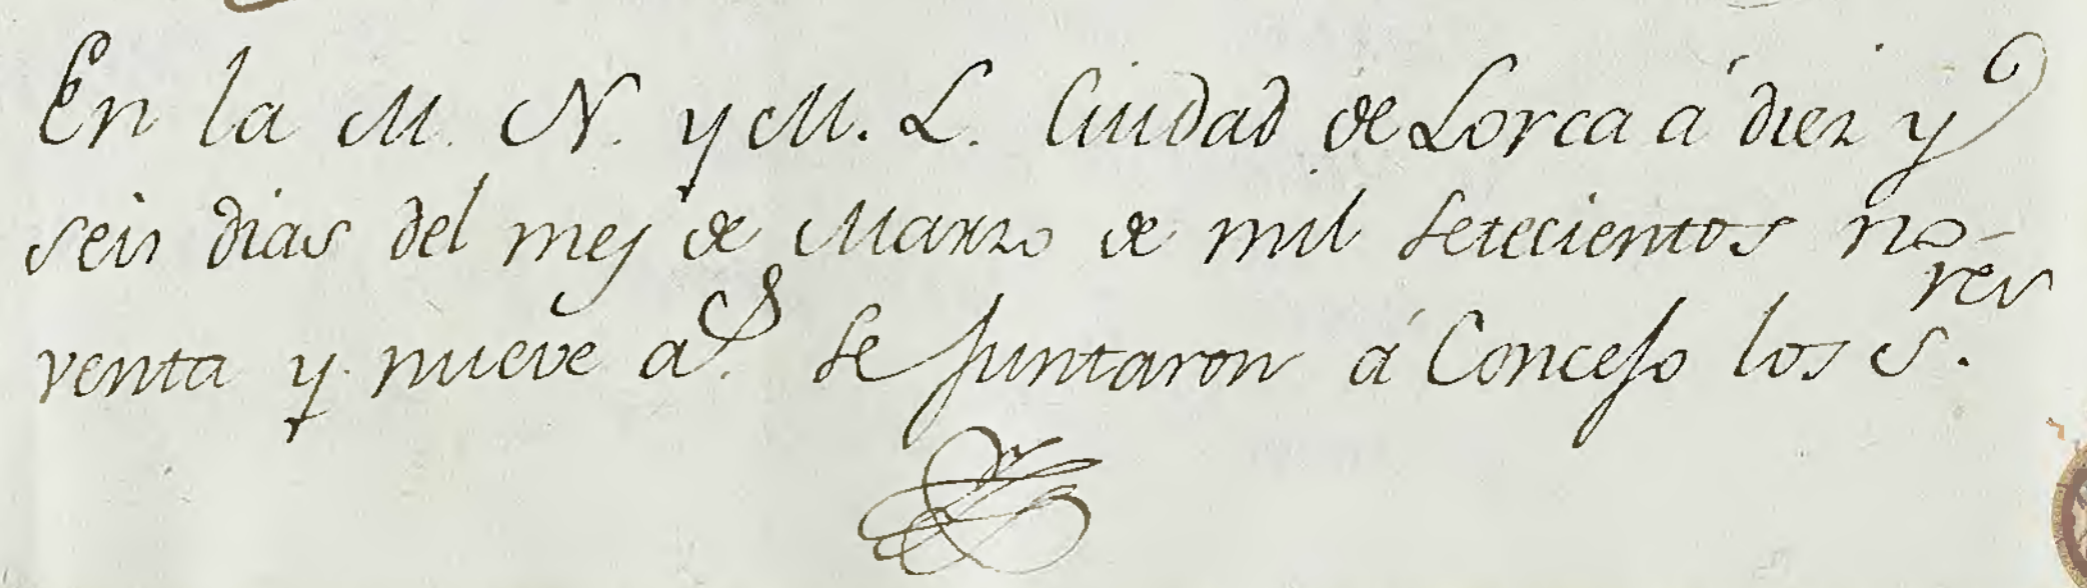 En la M. N. y M. L. Ciudad de Lorca á diez y
seis dias del mes de Marzo de mil setecientos no-
venta y nueve a.s se juntaron á Concejo los S.res